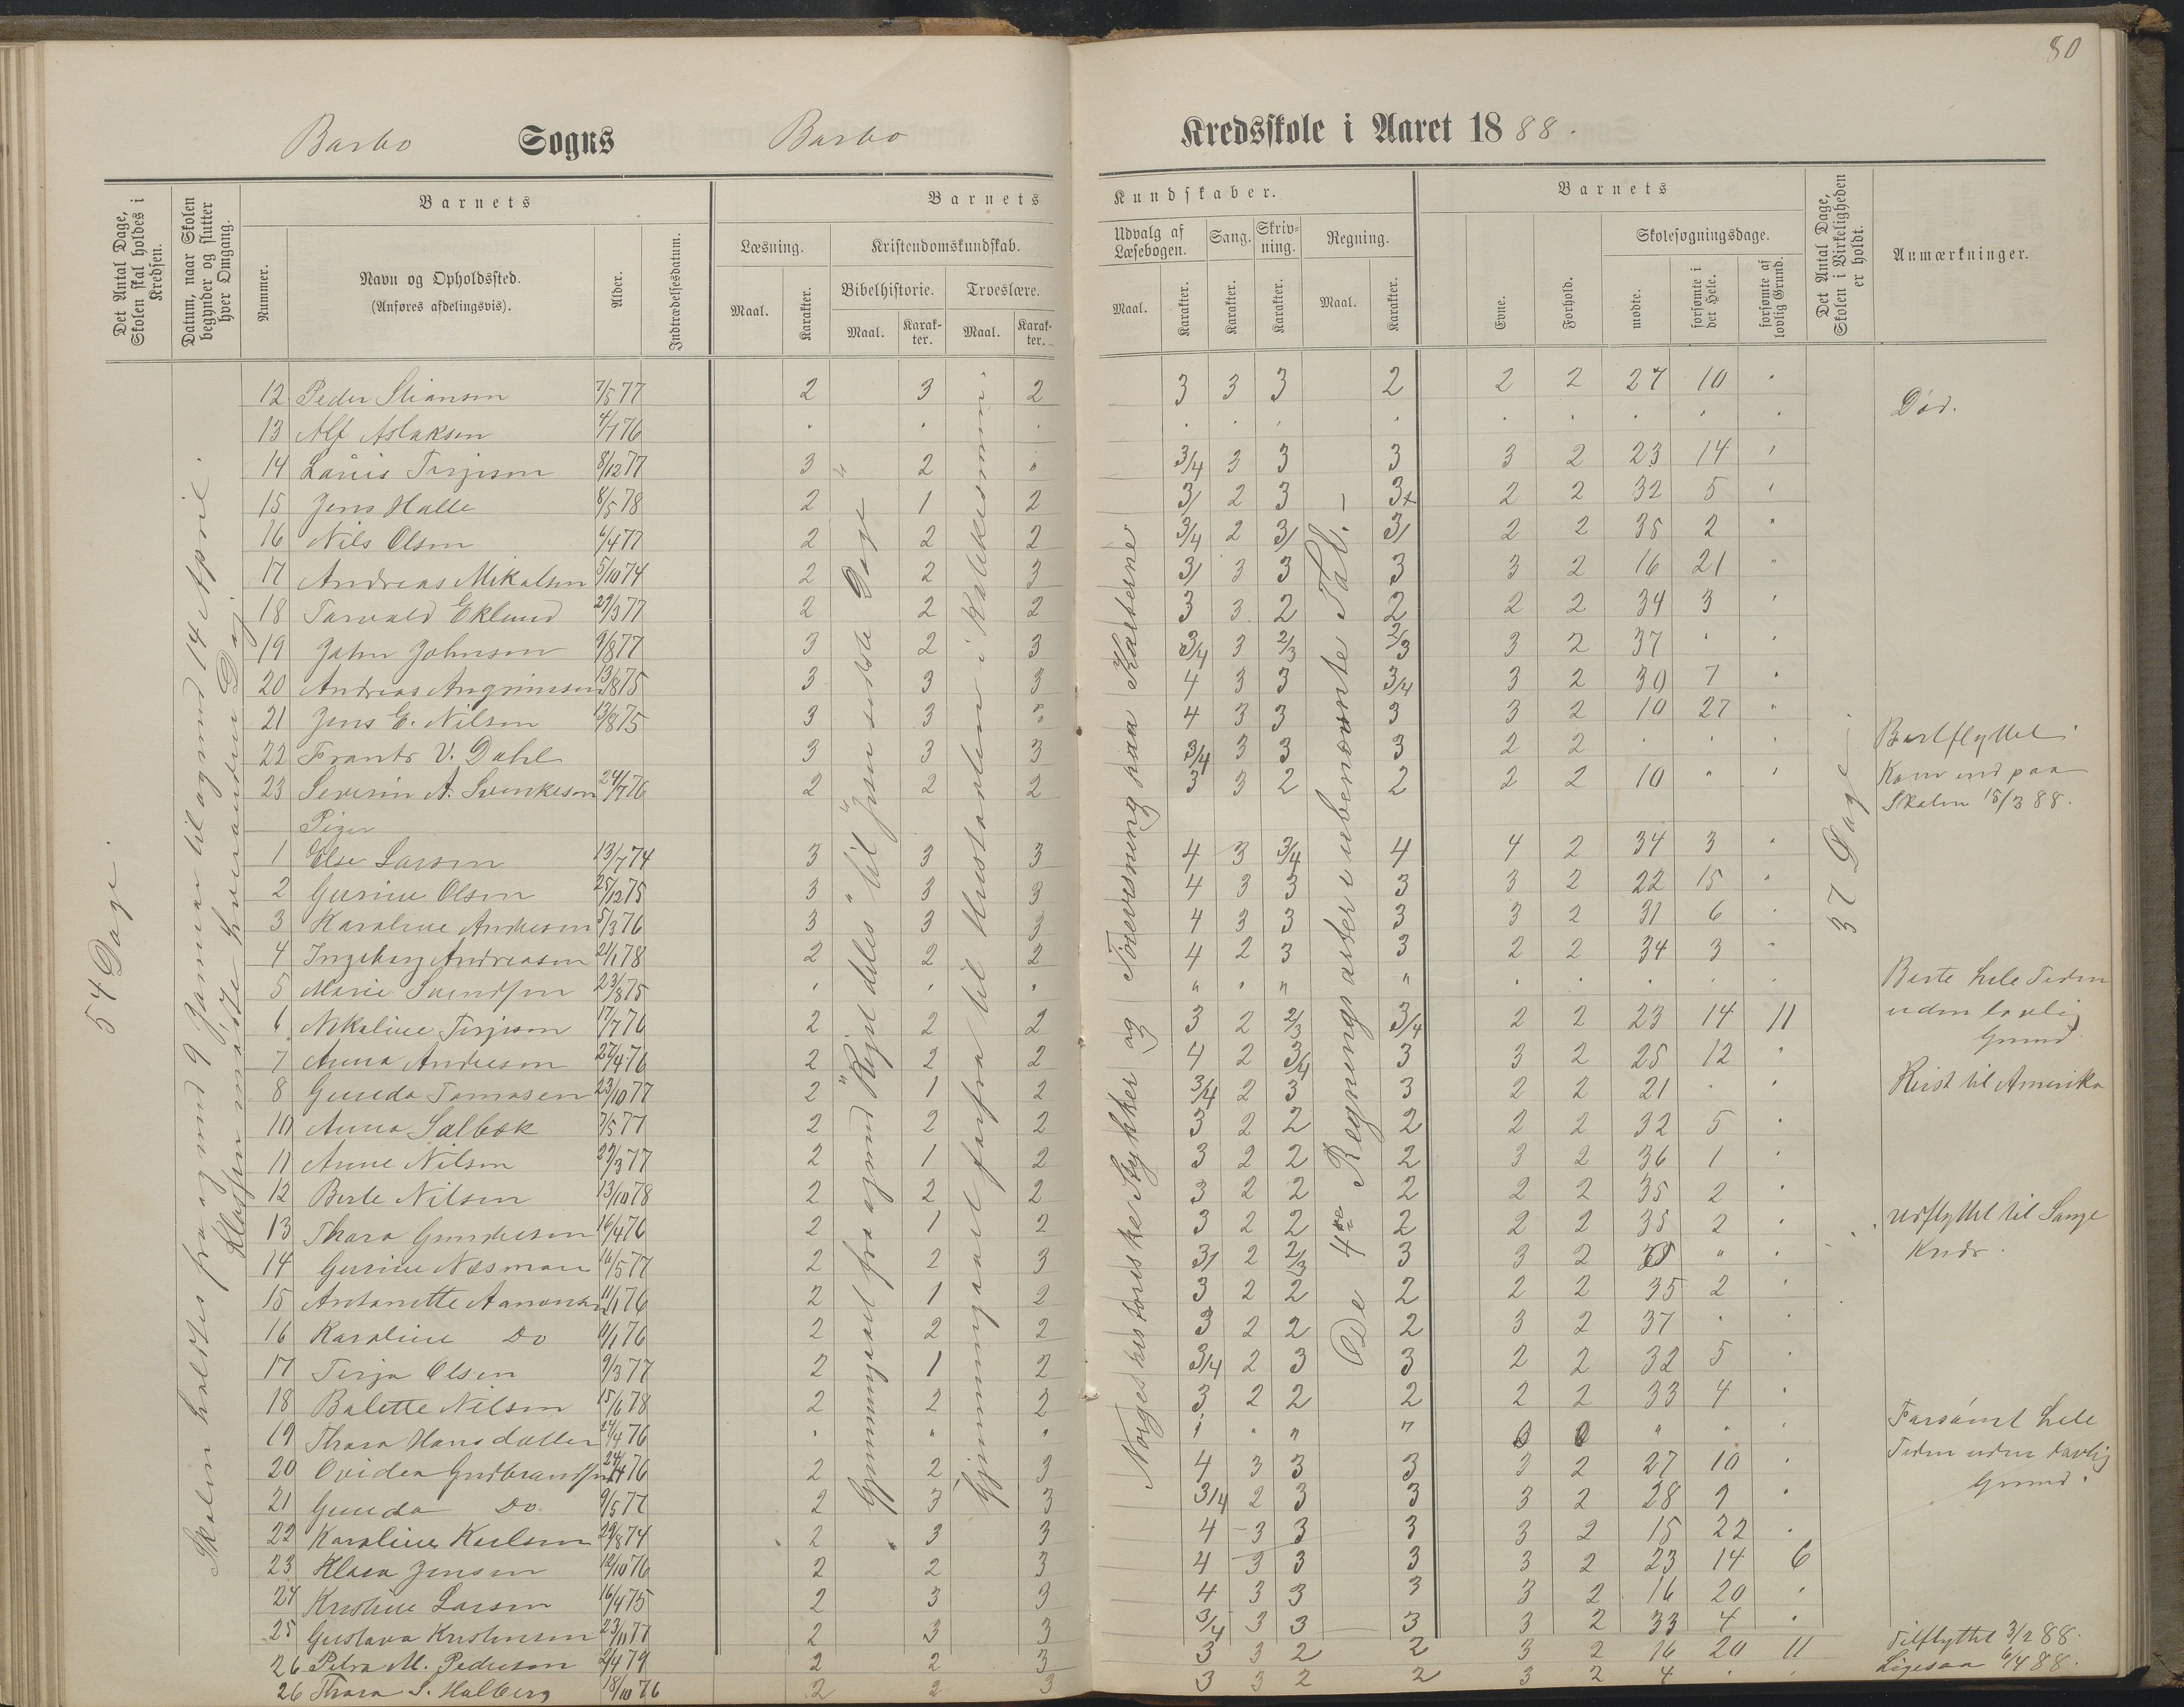 80
Barbo Sogns Barbo Kredsskole i Aaret 1888.
Det Antal Dage, Skolen skal holdes i Kredsen.
Datum, naar Skolen begynder og slutter hver Omgang.
Barnets
Nummer.
Navn og Opholdssted.
(Anføres afdelingsvis).
Alder.
Indtrædelsesdatum.
Barnets Kundskaber.
Læsning.
Maal.
Karakter.
Kristendomskundskab.
Bibelhistorie.
Maal.
Karakter.
Troeslære.
Maal.
Karakter.
Udvalg af Læsebogen.
Maal.
Karakter.
Sang.
Karakter.
Skrivning.
Karakter.
Regning.
Maal.
Karakter.
Barnets
Evne.
Forhold.
Skolesøgningsdage.
mødte.
forsømte i det Hele.
forsømte af lovlig Grund.
Det Antal Dage, Skolen i Virkeligheden er holdt.
Anmærkninger.
54 Dage.
Skolen holdtes fra og med 9 Januar til og med 14 April.
Klassen mødte hverandren Dag
Gjennemgaaet fra og med Rigets deles til Jesu sidste Dage
Gjennemgaaet forfra til Hustavlen i Katekismum
Norgeshistoriske Stykker og Forevisning paa Karterne
De 4re Regningsarter i ubenævnte Tal.
37 Dage.
12 Peder Stiansen 7/5 77 2 3 2 3 3 3 2 2 2 27 10 "
13 Alf Aslaksen 4/1 76 Død.
14 Låuis Terjesen 8/12 77 3 2 " 3/4 3 3 3 3 2 23 14 "
15 Jens Halle 8/5 78 2 1 2 3/ 2 3 3+ 2 2 32 5 "
16 Nils Olsen 6/4 77 2 2 2 3/4 2 3/ 3/ 2 2 35 2 "
17 Andreas Mikalsen 5/10 74 2 2 3 3/ 3 3 3 3 2 16 21 "
18 Tarvald Eklund 29/3 77 2 2 2 3 3 2 2 2 2 34 3 "
19 Jahn Johnson 9/8 77 3 2 3 3/4 3 2/3 2/3 3 2 37 " "
20 Andreas Angrimsen 13/8 75 3 3 3 4 3 3 3/4 3 2 30 7 "
21 Jens E. Nilsen 13/8 75 3 3 " 4 3 3 3 3 2 10 27 "
22 Frants V. Dahl 3 3 3 3/4 3 3 3 2 2 " " " Bortflyttet
23 Severin A. Svenkesen 24/7 76 2 2 2 3 3 2 2 2 2 10 " " Kom ind paa
Skolen 15/3 88.
Piger
1 Else Larsen 13/7 74 3 3 3 4 3 3/4 4 4 2 34 3 "
2 Gurine Olsen 25/12 75 3 3 3 4 3 3 3 3 2 22 15 "
3 Karoline Andresen 5/3 76 3 3 3 4 3 3 3 3 2 31 6 "
4 Ingeborg Andreasen 21/1 78 2 2 2 4 2 3 3 2 2 34 3 "
5 Marie Svendsen 23/8 75 Borte hele Tiden
uden lovlig
Grund.
6 Nikoline Terjesen 17/7 76 2 2 2 3 2 2/3 3/4 2 2 23 14 11
7 Anna Andresen 27/4 76 2 2 2 4 2 3/4 3 3 2 25 12 "
8 Gunda Tomasen 23/10 77 2 1 2 3/4 2 3 3 2 2 21 " " Reist til Amerika
10 Anna Salbek 7/5 77 2 2 2 3 2 2 2 2 2 32 5 "
11 Anne Nilsen 29/3 77 2 1 2 3 2 2 2 3 2 36 1 "
12 Berte Nilsen 13/10 78 2 2 2 3 2 2 2 2 2 35 2 "
13 Thora Gundersen 16/4 76 2 1 2 3 2 2 2 2 2 35 2 " udflyttet til Lange
Kredr.
14 Gurine Næsman 16/5 77 2 2 3 3/ 2 2/3 3 3 2 " "
15 Antonette Aanonsen 11/1 76 2 1 2 3 2 2 2 2 2 35 2 "
16 Karoline Do 11/1 76 2 2 2 3 2 2 2 3 2 37 " "
17 Terja Olsen 9/3 77 2 1 2 3/4 2 3 3 2 2 32 5 "
18 Bolette Nilsen 15/6 78 2 2 2 3 2 2 2 2 2 33 4 "
19 Thora Hansdatter 24/4 76 0 0 Forsømt hele
Tiden uden lovlig
Grund.
20 Ovidea Gudbrandsen 24/4 76 2 2 3 4 3 3 3 3 2 27 10 "
21 Gunda Do 9/5 77 2 3 3 3/4 2 3 3 3 2 28 9 "
22 Karoline Karlsen 29/8 74 2 3 3 4 3 3 3 3 2 15 22 "
23 Klara Jensen 12/10 76 2 2 3 4 3 3 3 3 2 23 14 6
24 Kristine Larsen 16/4 75 2 3 3 4 3 3 3 3 2 16 20 "
25 Gustava Kristensen 23/11 77 2 3 3 3/4 3 3 3 3 2 33 4 "
26 Petra M. Pedersen 2/4 79 2 2 3 3 3 2 2 3 2 16 20 11 Tilflyttet 3/2 88.
26 Thora S. Halberg 18/10 76 2 2 3 3 3 2 2 3 2 4 " " Ligesaa 6/4 88.